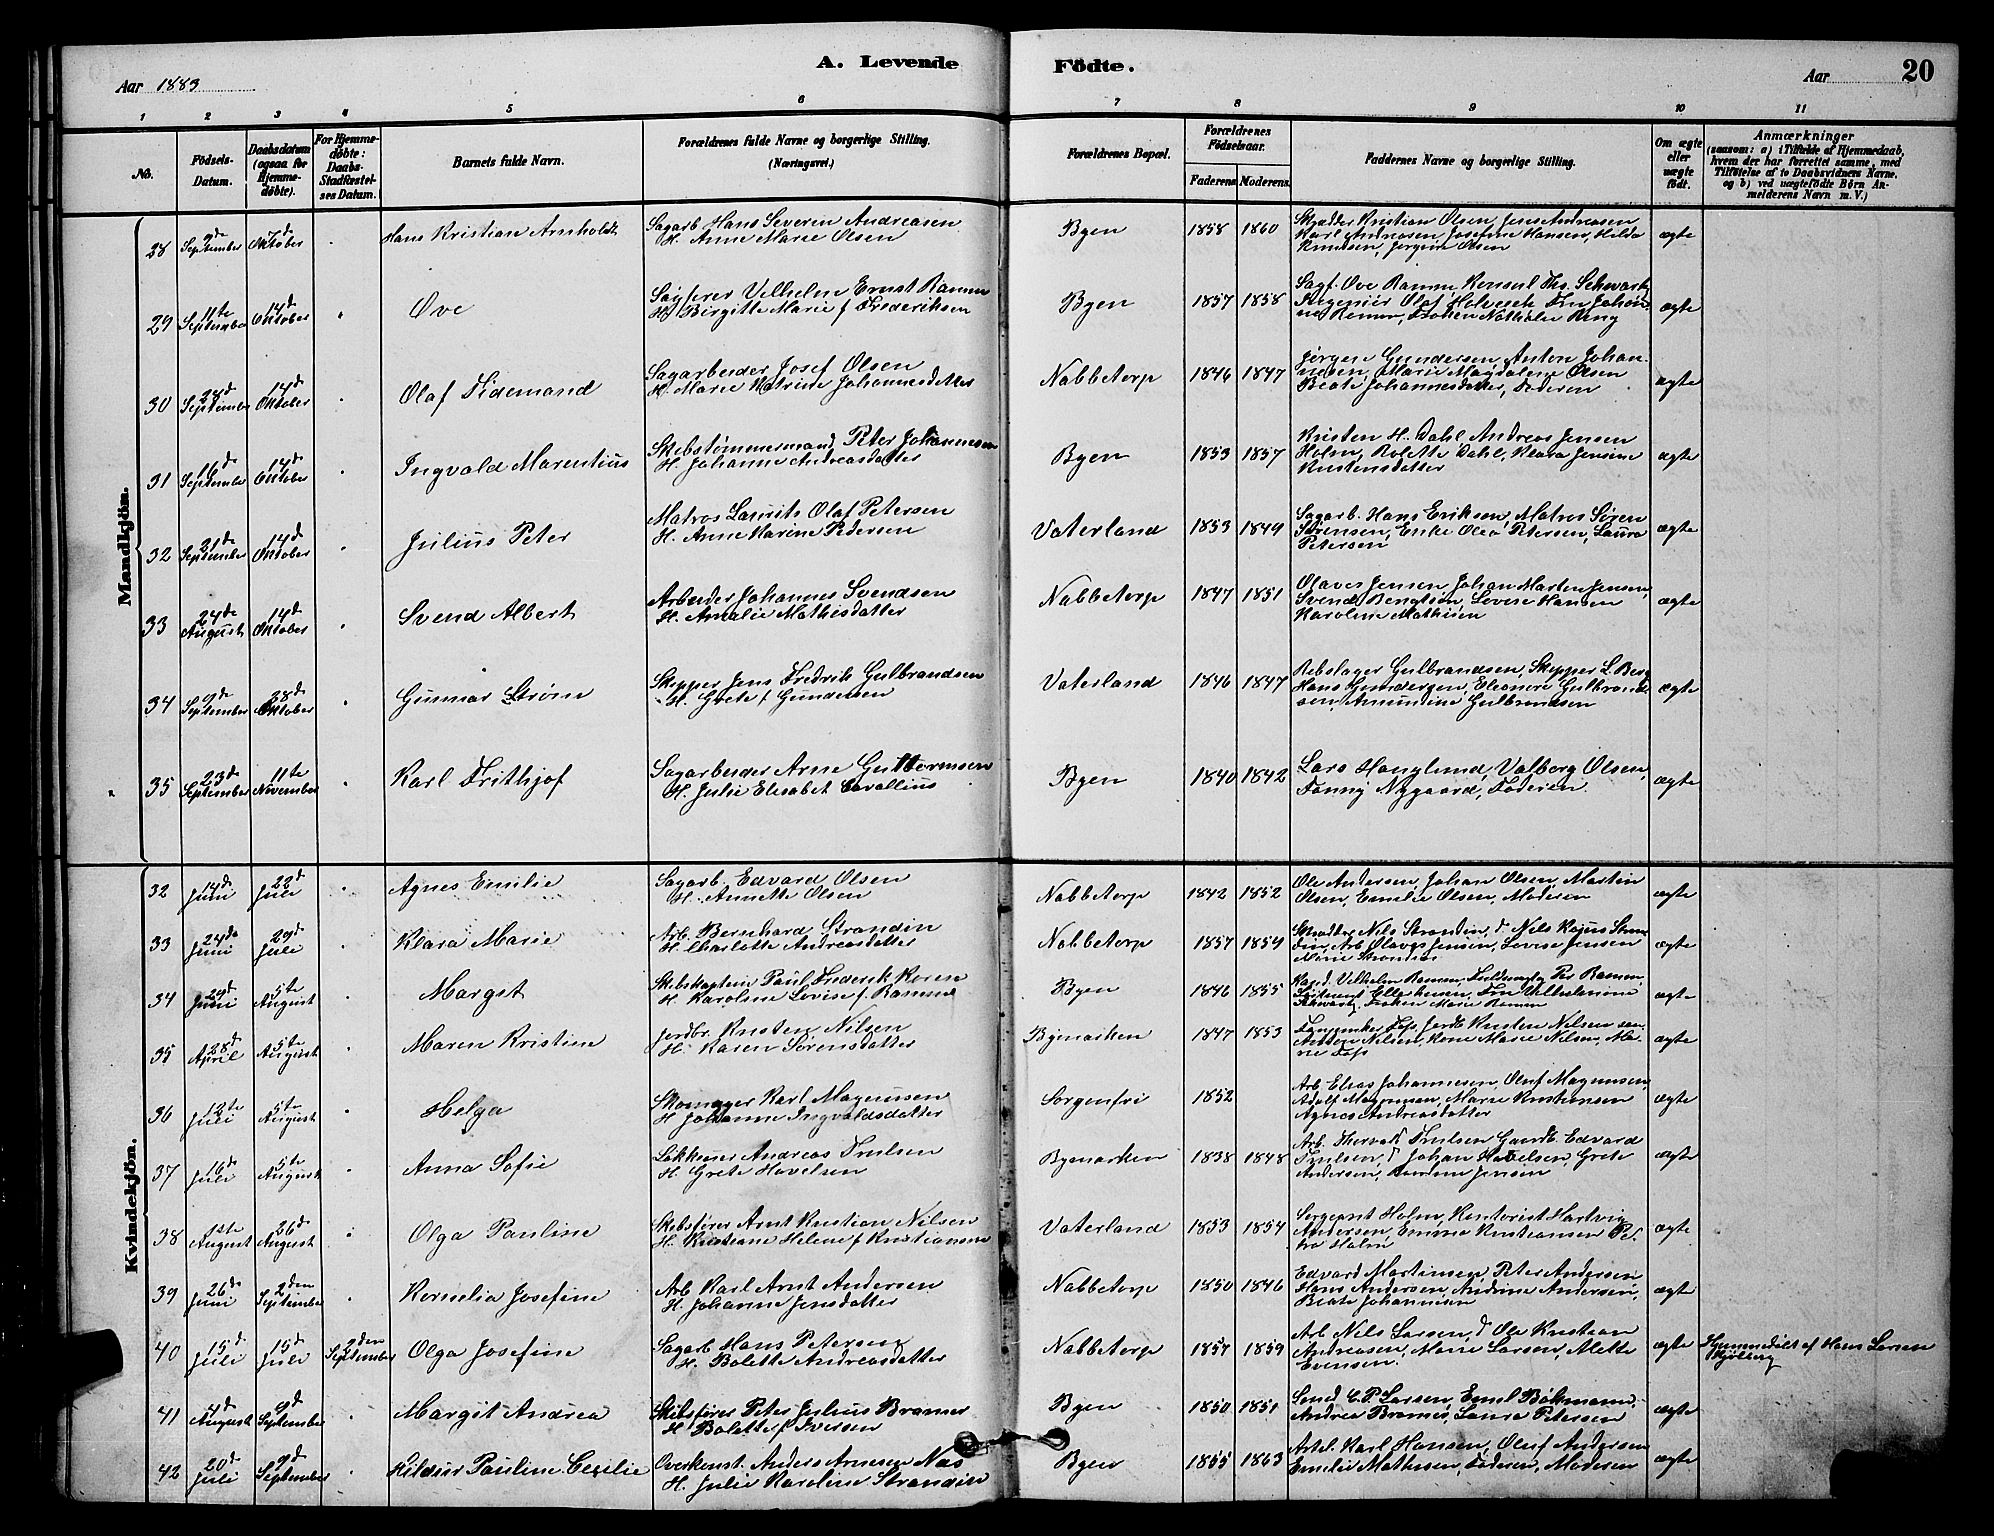 A. Levende Födte.
Aar 1883
Aar
20
1 2 3 4 5 6 7 8 9 10 11
No.
Födsels-Datum.
Daabsdatum (ogsaa for Hjemmedöbte).
For Hjemmedöbte: Daabs-Stadfæstelses Datum.
Barnets fulde Navn.
Forældrenes fulde Navne og borgerlige Stilling. (Næringsvei.)
Forældrenes Bopæl.
Forældrenes Födselsaar.
Faderens Moderens
Faddernes Navne og borgerlige Stilling.
Om ægte eller uægte födt.
Anmærkninger
(saasom: a) i Tilfælde af Hjemmedaab, hvem der har forrettet samme, med Tilföielse af to Daabsvidners Navne. og b) ved uægtefödte Börn Anmelderens Navn m. V.)
Mandkjön.
28 September 7de Oktober Hans Kristian Arnholdt Sagarb Hans Severin Andreasen Byen 1858 1860 Skrædder Kristian Olsen, Jens Andreasen ægte
H. Anne Marie Olsen Karl Andreasen, Josefine Hansen, Hilda
Knudsen, Jørgine Olsen
29 11te September 14d Oktober Ove Sagfører Vilhelm Ernst Ramm Byen 1857 1858 Sagf. Ove Ramm, Konsul Ths. Schwartz ægte
H. Birgitte Marie f Frederiksen Ingeniør Olaf
Ramm, Frøken Nathalie Ring
30 28d September 14d Oktober Olaf Tidemand Sagarbeider Josef Olsen Nabbetorp 1846 1847 Jørgen Gundersen, Anton Johan- ægte
H. Marie Katrine Johannesdatter nesen, Marie Magdalene Olsen
Beate Johannesdatter, Faderen
31 16d September 14d Oktober Ingvald Marentius Skibstømmermand Peter Johannesen Byen 1853 1857 Kristen H. Dahl, Andreas Jensen ægte
H. Johanne Andreasdatter Holm, Bolette Dahl, Klara Jensine
Kristensdatter
32 21de September 14d Oktober Julius Peter Matros Laurits Olaf Petersen Vaterland 1853 1849 Sagarb. Hans Eriksen, Matros Søren ægte
H. Anne Karine Pedersen Sørensen, Enke Olea Petersen, Laura
Petersen
33 24de August 14d Oktober Svend Albert Arbeider Johannes Svendsen Nabbetorp 1847 1851 Olaves Jensen, Johan Martin Jensen, ægte
H. Amalie Mathisdatter Svend Bengtson, Lovise Hansen
Karoline Mathisen
34 9de September 28d Oktober Gunnar Strøm Skipper Jens Fredrik Gulbrandsen Vaterland 1846 1847 Rebslager Gulbrandsen, Skipper L. Berg ægte
H. Grete f Gundersen Hans Gundersen, Eleonore Gulbrand-
sen, Amundine Gulbrandsen
35 23d September 11te November Karl Frithjof Sagarbeider Arne Guttormsen Byen 1840 1842 Lars Hauglund, Valborg Olsen, ægte
H. Julie Elisabet Cavallius Fanny Nygaard, Faderen
Kvindekjön.
32 14de Juni 22d Juli Agnes Emilie Sagarb. Edvard Olsen Nabbetorp 1842 1852 Ole Andersen, Johan Olsen, Martin ægte
H. Annette Olsen Olsen, Emilie Olsen, Moderen
33 24de Juni 29d Juli Klara Marie Arb. Bernhard Strandin Nabbetorp 1857 1854 Skrædder Nils Strandin, Nils Kajus Stran- ægte
H. Charlotte Andreasdatter din, Arb. Olaves Jensen, Lovise Jensen
Marie Strandin
34 Juni 5te August Margit Skibskaptein Paul Frederik Koren Byen 1846 1855 Vilhelm Ramm, Per Ramm, ægte
H. Karoline Lovise f. Ramm Fru Vilhelmine
Schwartz, Frøken Marie Ramm
35 28d April 5te August Maren Kristine Jordbr. Kristen Nilsen Bymarken 1847 1853 Kristen Nilsen ægte
H. Karen Sørensdatter Anton Nilsen, Kone Marie Nilsen, Ma-
36 12te Juli 5te August Helga Skomager Karl Magnussen Sorgenfri 1852 Arb. Elias Johannesen, Oluf Magnussen, ægte
H. Johanne Ingvaldsdatter Adolf Magnussen, Marie Kristiansen
Agnes Andreasdatter
37 16de Juli 5te August Anna Sofie Løkkeeier Andreas Trulsen Bymarken 1838 1848 Arb. Thorvald Trulsen, Gaardb. Edvard ægte
H. Grete Havelsen Trulsen, Johan Havelsen, Grete
Andersen, Jensen
38 12te August 26d August Olga Pauline Skibsfører Arnt Kristian Nilsen Vaterland 1853 1854 Sergeant Holm, Kontorist Hartvig ægte
H. Kristiane Helene f Kristiansen Andersen, Emma Kristiansen Pe-
tra Holm
39 26d Juni 2den September Kornelia Josefine Arb Karl Arnt Andersen Nabbetorp 1850 1846 Edvard Martinsen, Peter Andersen ægte
H. Johanne Jensdatter Hans Andersen, Andrine Andersen,
Beate Johannesen
40 15d Juli 15d Juli 2den September Olga Josefine Sagarb Hans Petersen Nabbetorp 1857 1859 Arb Nils Larsen, Ole Kristian ægte Hjemmedøbt af Hans Larsen
H. Bolette Andreasdatter Andreasen, Marie Larsen, Mette Kjølberg
Evensen
41 4d August 9d September Margit Andrea Skibsfører Peter Julius Bramer Byen 1850 1851 C.P. Larsen, Emil Böhmann, ægte
H Bolette f Iversen Andrea Laura Petersen
42 20d Juli 9d September Hildur Pauline Cecilie Overkonst. Anders Arnesen Næs Byen 1855 1863 Artel. Karl Hansen, Oluf Andersen ægte
H. Julie Karoline Strandin Emilie Mathisen, Faderen, Moderen